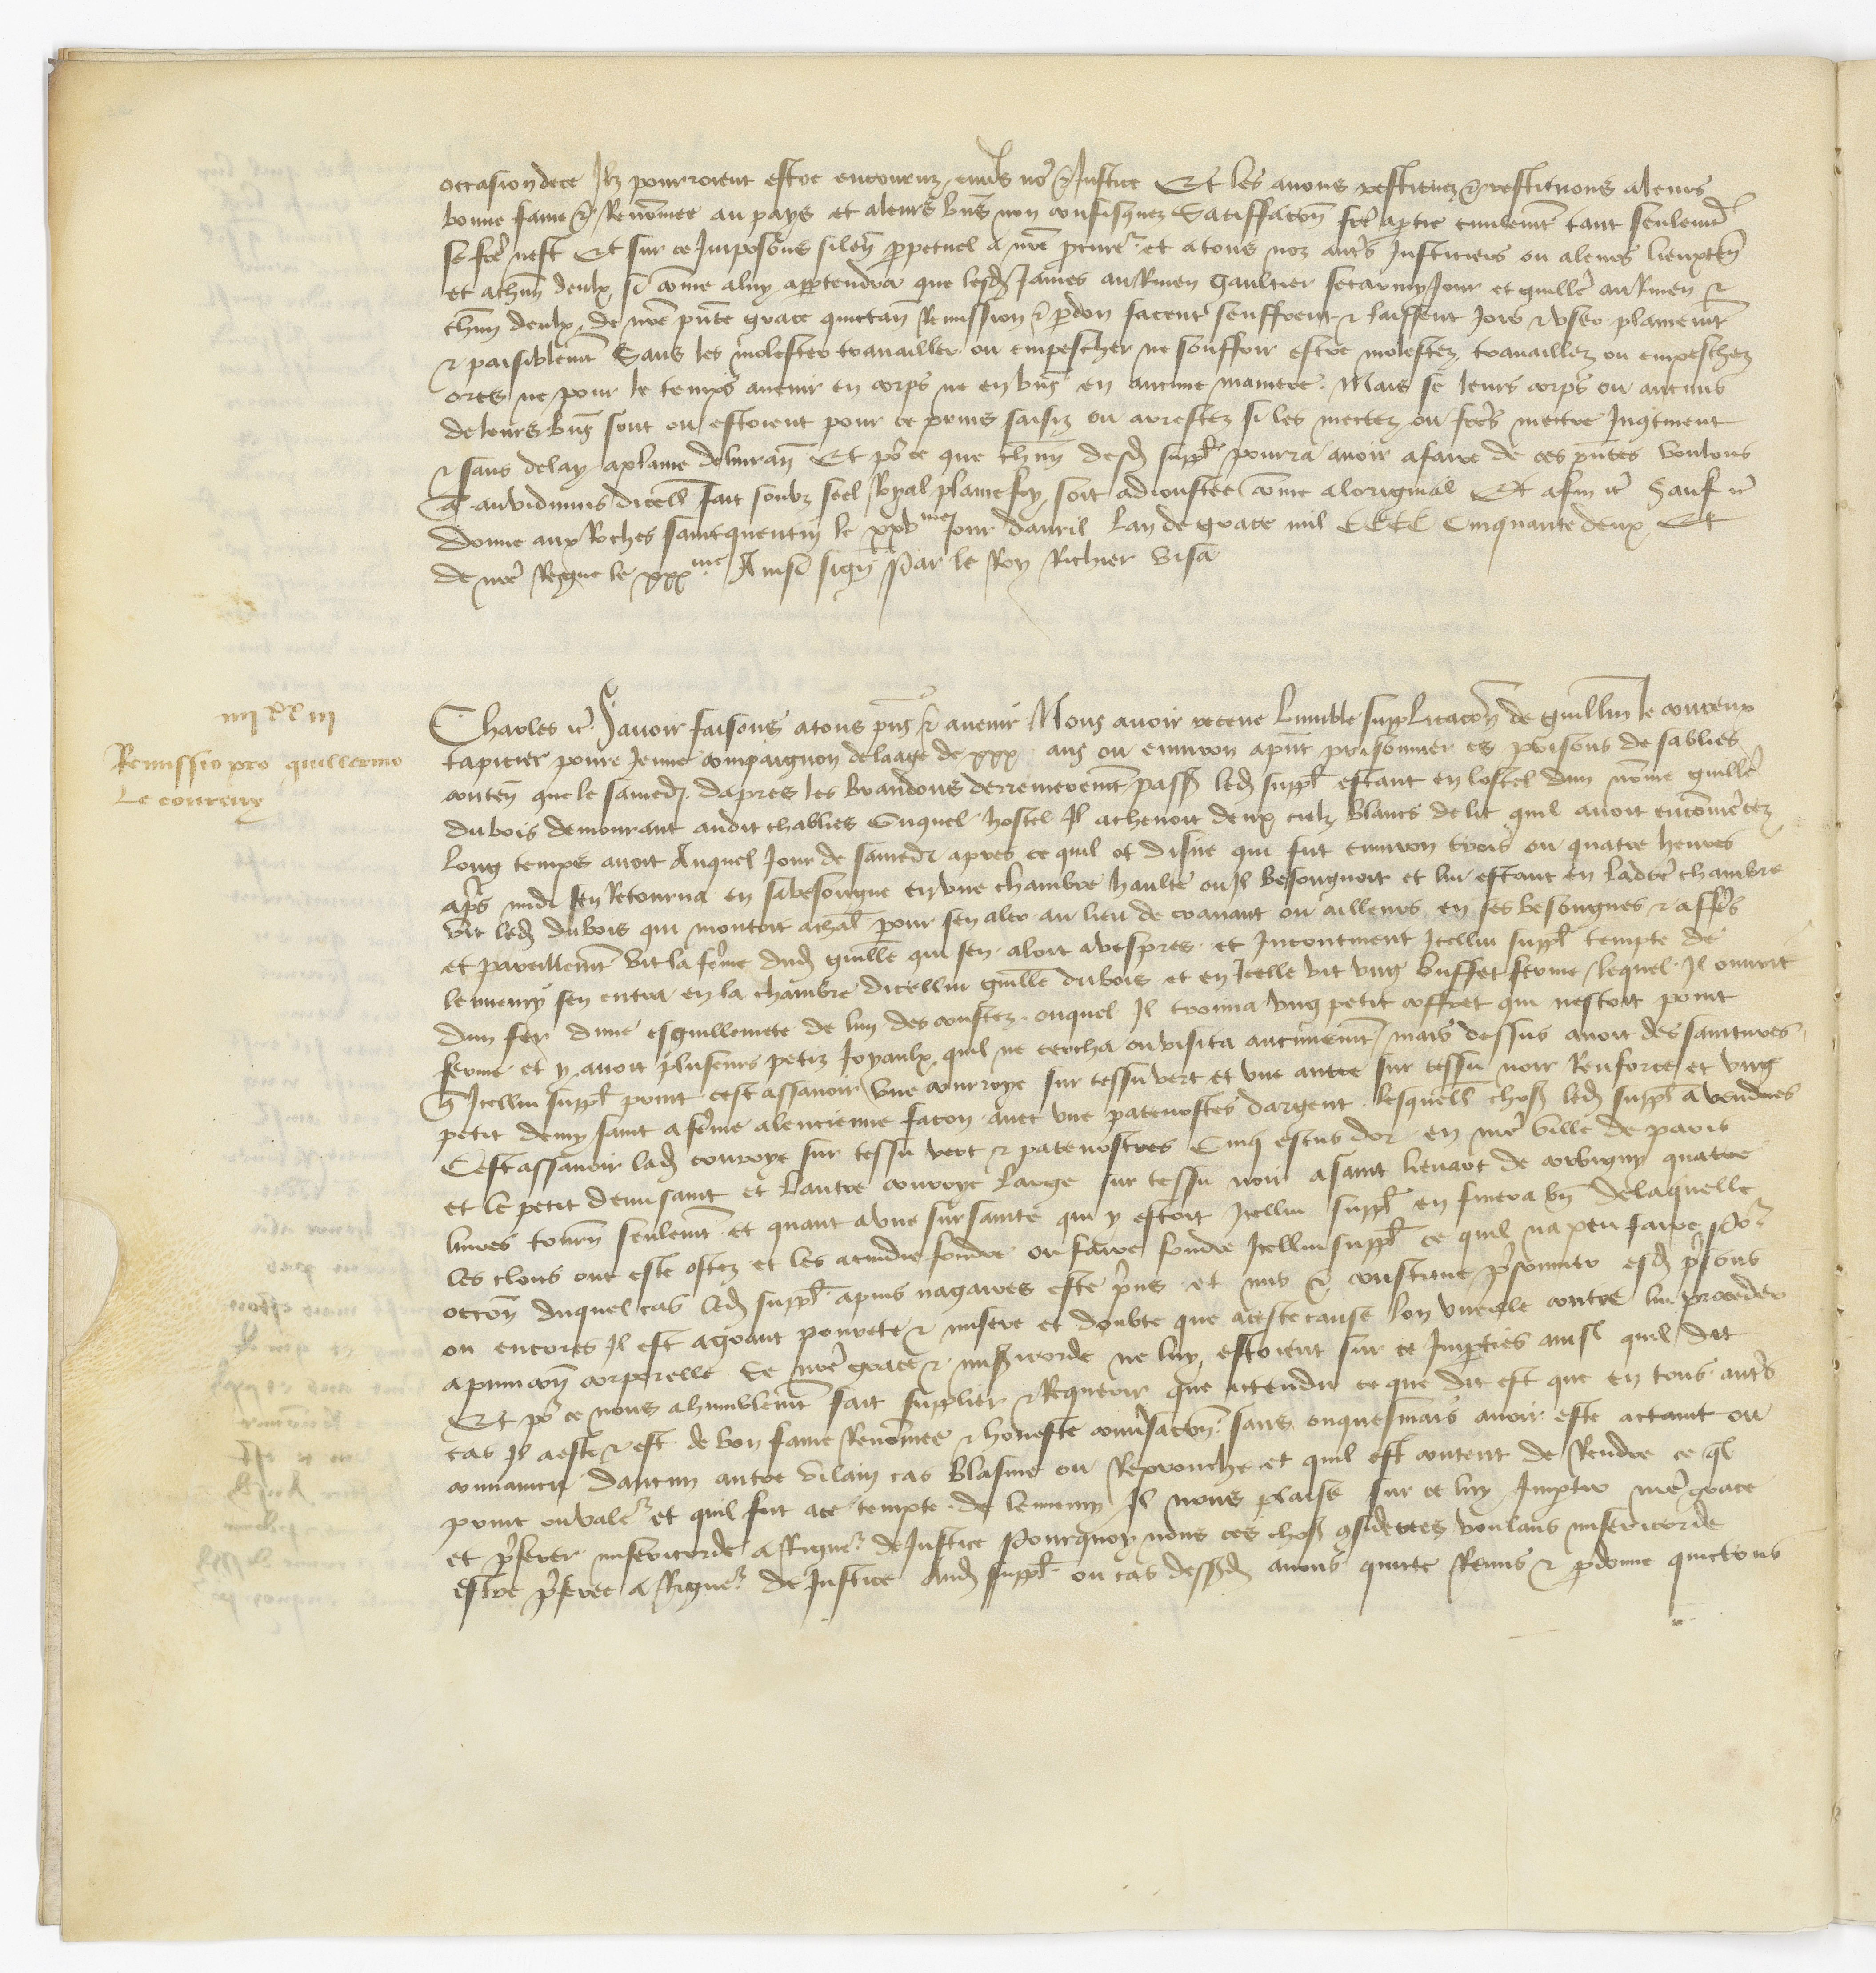 occasion de ce Ilz pourroient estre encouruz envs nos & Justice Et les avons restituez & restituons a leurs
bonne fame & Renommee au pays et a leurs bns non confisquez Satisffacon fcte a partie civilemt tant seulemt
se fcte nest Et sur ce Imposons silen perpetuel a nre procureur et a tous noz autrs Justiciers ou a leurs lieuxten
et a chun deulx si comme a luy appartendra que lesd James Gaultier et guille &
chun deulx de nre pnte grace quictan Remission & pardon facent seuffrent & laissent Joir & user plainemt
& paisiblemt Sans les molester travailler ou empescher ne souffrir estre molestez travaillez ou empeschez
ores ne pour le temps avenir en corps ne en bns en aucune maniere Mais se leurs corps ou aucuns
de leurs bns sont ou estoient pour ce prins saisiz ou arrestez si les mectez ou fctes mectre Incontinent
& sans delay a plaine delivran Et por ce que chun desd suppl pourra avoir a faire de ces pntes voulons
a au vidimus dicell fait soubz seel Royal plaine foy soit adioustee comme a loriginal Et afin etc Sauf etc
Donne aux Roches saintquentin le xxvme Jour davril Lan de grace mil CCCC Cinquante deux Et
de nre Regne le xxxme Ainsi sign Par le Roy Richier Visa
iiii xx iii
Remissio pro guillermo
Le coureux
Charles etc Savoir faisons a tous pns & avenir Nous avoir receue Lumble supplicacon de guillin le coureux
tapicier povre Jeune compaignon de laage de xxx ans ou environ a pnt prisonnier es prisons de sablies
conten que le samedi dapres les brandons derrenieremt passe led suppl estant en lostel dun nomme guille
dubois demourant audit chablies Ouquel hostel Il achevoit deux cielz blancs de lit quil avoit encommencez
Long temps avoit Auquel Jour de samedi apres ce quil ot disne qui fut environ trois ou quatre heures
aprs midi sen Retourna en sa besongne en une chambre haulte ou Il besongnoit et lui estant en ladcte chambre
vit led dubois qui montoit a cheval pour sen aler au lieu de cravant ou ailleurs en ses besongnes & affres
et pareillemt vit la feme dud guille qui sen aloit a vespres et Incontinent Icellui suppl tempte de
lennemy sen entra en la chambre dicellui guille dubois et en Icelle vit ung buffet ferme lequel Il ouvrit
dun fer dune esguillecte de lun des coustez ouquel Il trouva ung petit coffret qui nestoit point
ferme et y avoit plusieurs petiz Joyaulx quil ne cercha ou visita aucunemt mais dessus avoit des saintures
q Icellui suppl print cestassavoir une courroye sur tessu vert et une autre sur tessu noir Renforce et ung
petit demy saint a feme a lencienne facon avec une patenostres dargent lesquell chos led suppl a vendues
Cestassavoir lad couroye sur tessu vert & patenostres Cinq escus dor en nre ville de paris
et le petit demisaint et Lautre couroye Large sur tessu noir a saint lienart de corbigny quatre
livres tourn seulemt et quant a une sursainte qui y estoit Icellui suppl en finera bn de laquelle
les clous ont este ostez et les a cuidie fondre ou faire fondre Icellui suppl ce quil na peu faire Por
occon duquel cas led suppl a puis nagaires este prins et mis & constitue prisonnier esd prisons
ou encores Il est a grant povrete & misere et doubte que a ceste cause lon vueille contre lui proceder
a punicon corporelle se nre grace & miscorde ne luy estoient sur ce Imparties ainsi quil dit
Et por ce nous a humblemt fait supplier & Requerir que actendu ce que dit est que en tous autrs
cas Il a este & est de bon fame Renommee & honneste conversacon sans onquesmais avoir este actaint ou
convaincu daucun autre vilain cas blasme ou Reprouche et quil est content de Rendre ce ql
print ou valer et quil fut a ce tempte de lennemy Il nous plaise sur ce luy Impartir nre grace
et preferer misericorde a Riguer de Justice Pourquoy nous ces chos considerees voulans misericorde
estre preferee a Riguer de Justice Aud suppl ou cas dessusd avons quicte Remis & pardonne quictons